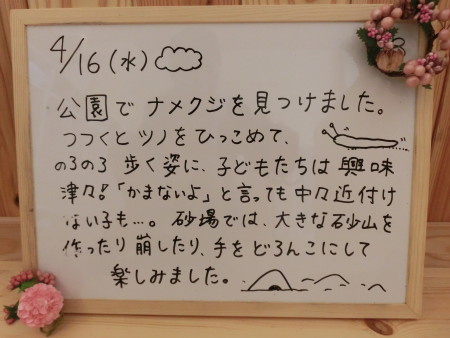 4/16(水)
公園で ナメクジを見つけました。
つつくと ツノをひっこめて、
のろのろ 歩く姿に、子どもたちは 興味
津々!「かまないよ」と言っても 中々近付け
ない子も…。 砂場では、大きな砂山を
作ったり 崩したり、手を どろんこにして
楽しみました。